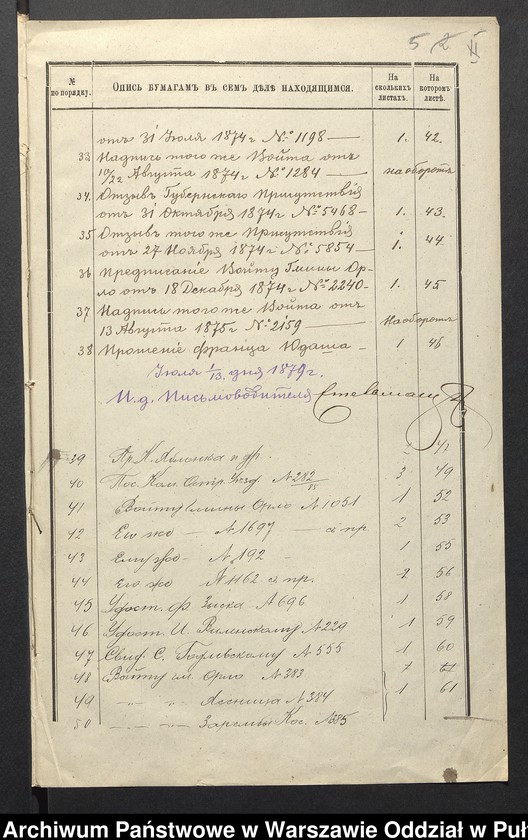 5
№ по порядку.
Опись бумагамъ въ семъ дѣлѣ находящимся.
На сколькихъ листахъ.
На которомъ листѣ.
отъ 31 Іюля 1874 г № 1198 — 1. 42.
33 Надпись того же Войта отъ
10/22 Августа 1874 г № 1284 — на оборотѣ
34. Отзывъ Губернскаго Присутствія
отъ 31 Октября 1874 г № 5468 — 1. 43.
35 Отзывъ того же Присутствія
отъ 27 Ноября 1874 г № 5854 — 1. 44
36 Предписаніе Войту Гмины Ор-
ло отъ 18 Декабря 1874 г № 2240 — 1. 45
37 Надпись того же Войта отъ
13 Августа 1875 г № 2159 — На оборотѣ
38 Прошеніе Франца Юдаша — 1 46
Іюля 1/13 дня 1879 г.
И. д. Письмоводителя
39 Пр. К. Яблонка и др. 47
40 № 282/85 3 49
41 Войту Гмины Орло № 1051 1 52
42 Его жо — № 1697 — 2 53
43 Ему жо — № 192 — 1 55
44 Его жо № 1162 2 56
45 Удост. Ф. № 696 1 58
46 Удост. И № 229 1 59
47 Свид. С. № 555 1 60
48 Войту гм. Орло № 383 61
49 — " — " Ясеница № 384 1 61
50 — " — Кос. № 385
Archiwum Państwowe w Warszawie Oddział w Puł